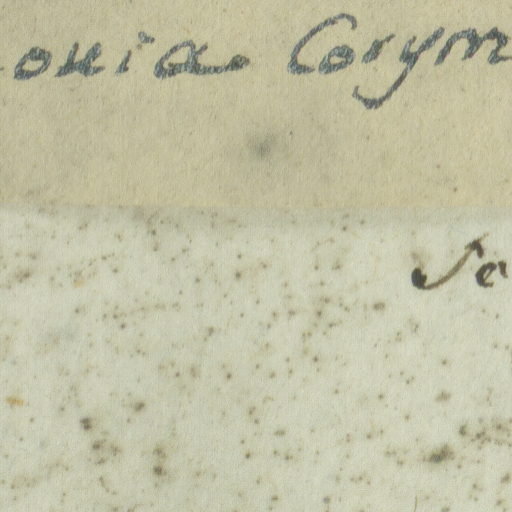 ouia Corym
Se